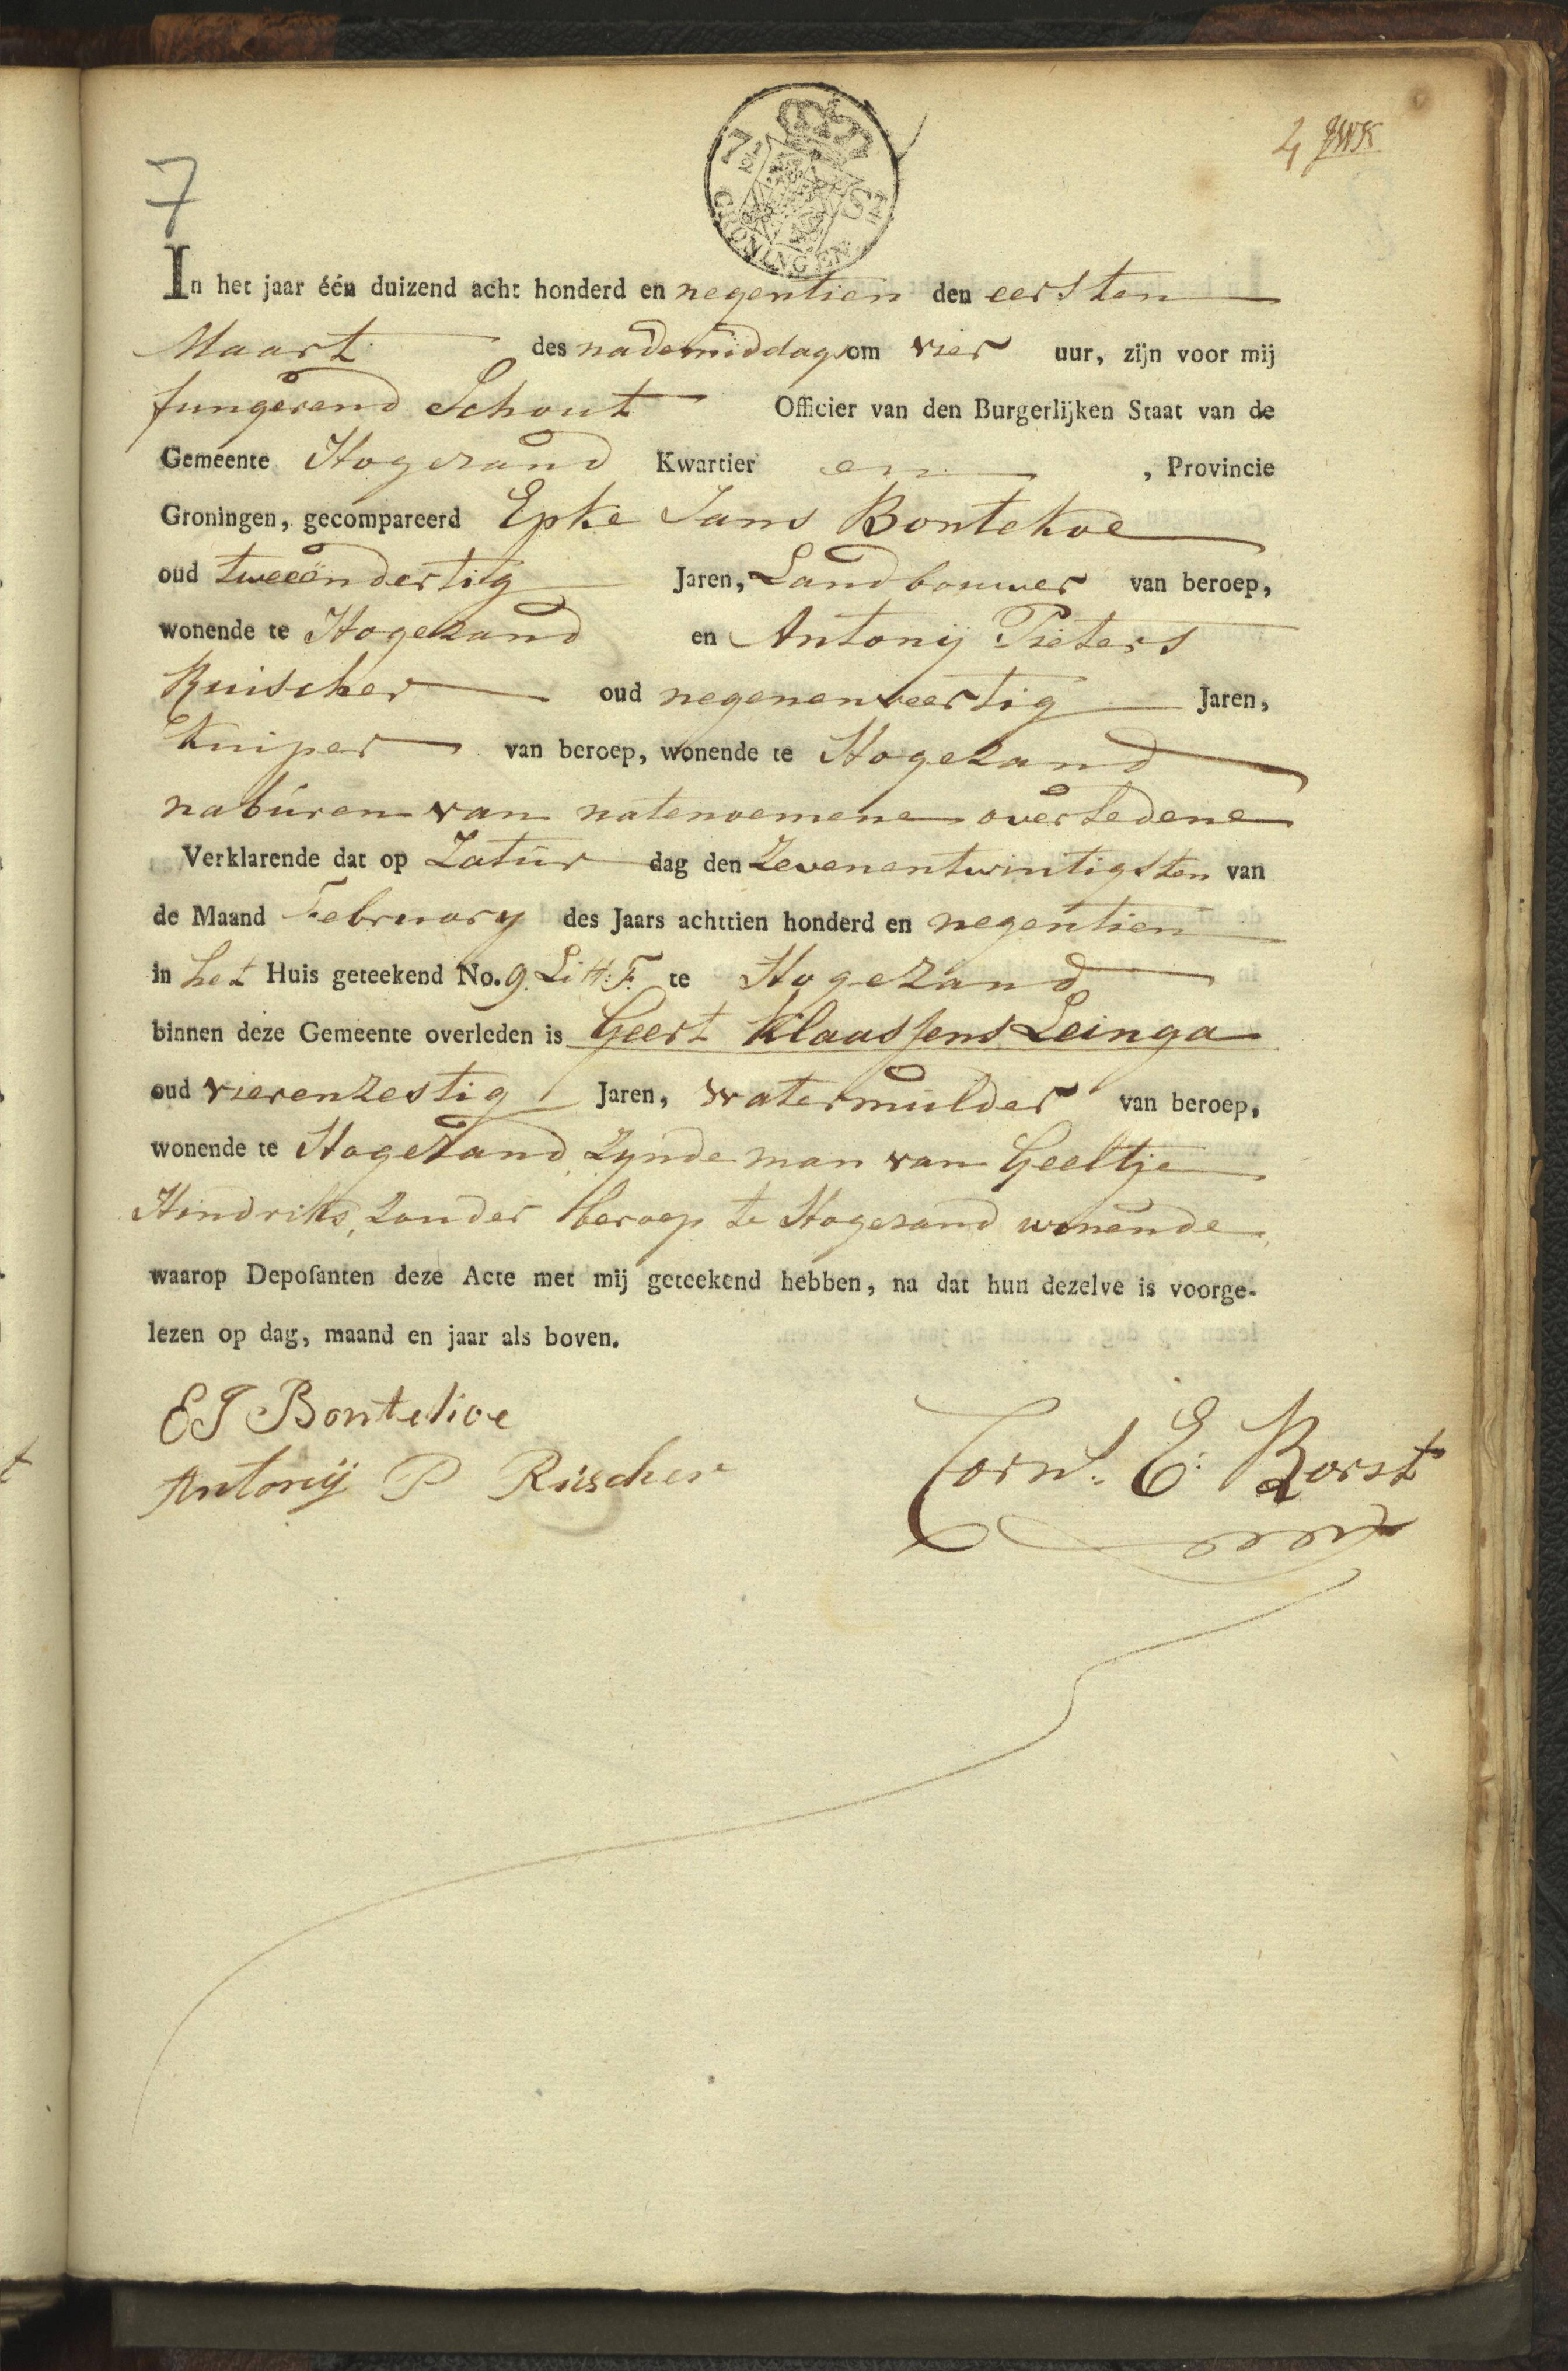 4 JWK
7
7½ St
GRONINGEN
In het jaar één duizend acht honderd en negentien den eersten
Maart des nademiddags om vier uur, zijn voor mij
fungerend Schout Officier van den Burgerlijken Staat van de
Gemeente Hogezand Kwartier en , Provincie
Groningen, gecompareerd Epke Jans Bontekoe
oud tweeëndertig Jaren, Landbouwer van beroep,
wonende te Hogezand en Antonij Pieters
Ruischer oud negenenveertig Jaren,
Kuiper van beroep, wonende te Hogezand
naburen van natenoemene overledene
Verklarende dat op Zatur dag den Zevenentwintigsten van
de Maand February des Jaars achttien honderd en negentien
in het Huis geteekend No. 9 Litt: F. te Hogezand
binnen deze Gemeente overleden is Geert Klaassens Leinga
oud vierenzestig Jaren, watermulder van beroep,
wonende te Hogezand, zynde man van Geeltje
Hindriks, zonder beroep te Hogezand wonende
waarop Deposanten deze Acte met mij geteekend hebben, na dat hun dezelve is voorge-
lezen op dag, maand en jaar als boven.
EJ Bontekoe
Antonij P Ruscher
Corns. E: Borst